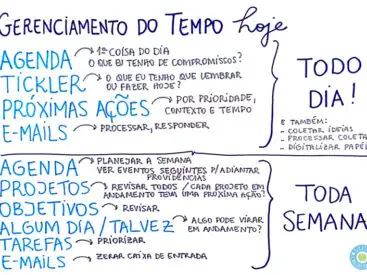 GERENCIAMENTO DO TEMPO hoje
AGENDA → 1ª COISA DO DIA
O QUE EU TENHO DE COMPROMISSOS?
TICKLER → O QUE EU TENHO QUE LEMBRAR
OU FAZER HOJE?
PRÓXIMAS AÇÕES → POR PRIORIDADE,
CONTEXTO E TEMPO
E-MAILS → PROCESSAR, RESPONDER
TODO
DIA!
E TAMBÉM:
- COLETAR IDEIAS
- PROCESSAR COLETA
- DIGITALIZAR PAPÉI
AGENDA → PLANEJAR A SEMANA
VER EVENTOS SEGUINTES P/ADIANTAR
PROVIDÊNCIAS
PROJETOS → REVISAR TODOS / CADA PROJETO EM
ANDAMENTO TEM UMA PRÓXIMA AÇÃO?
OBJETIVOS → REVISAR
ALGUM DIA / TALVEZ → ALGO PODE VIRAR
EM ANDAMENTO?
TAREFAS → PRIORIZAR
E-MAILS → ZERAR CAIXA DE ENTRADA
TODA
SEMANA